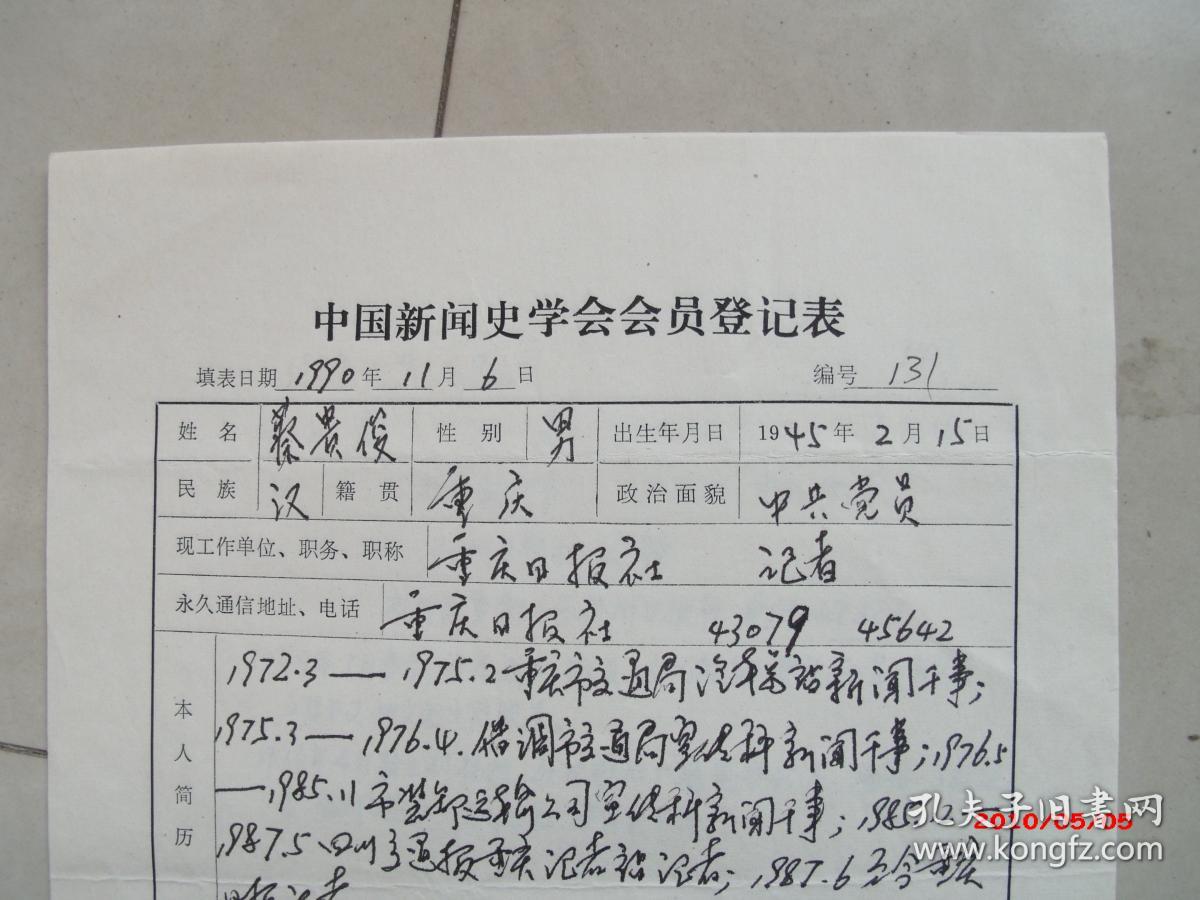 中国新闻史学会会员登记表
填表日期 1990 年 11 月 6 日 编号 131
姓名 蔡贵俊 性别 男 出生年月日 1945年 2月 15日
民族 汉 籍贯 重庆 政治面貌 中共党员
现工作单位、职务、职称 重庆日报社 记者
永久通信地址、电话 重庆日报社 43079 45642
本人简历
1972.3—1975.2 重庆市交通局汽车站新闻干事;
1975.3—1976.4. 借调市交通局宣传科新闻干事;1976.5
—1985.11 市装卸运输公司宣传科新闻干事;1985.12—
1987.5 四川交通报重庆记者站记者;1987.6至今重庆
日报记者
孔夫子旧书网
2010/05/05
www.kongfz.com